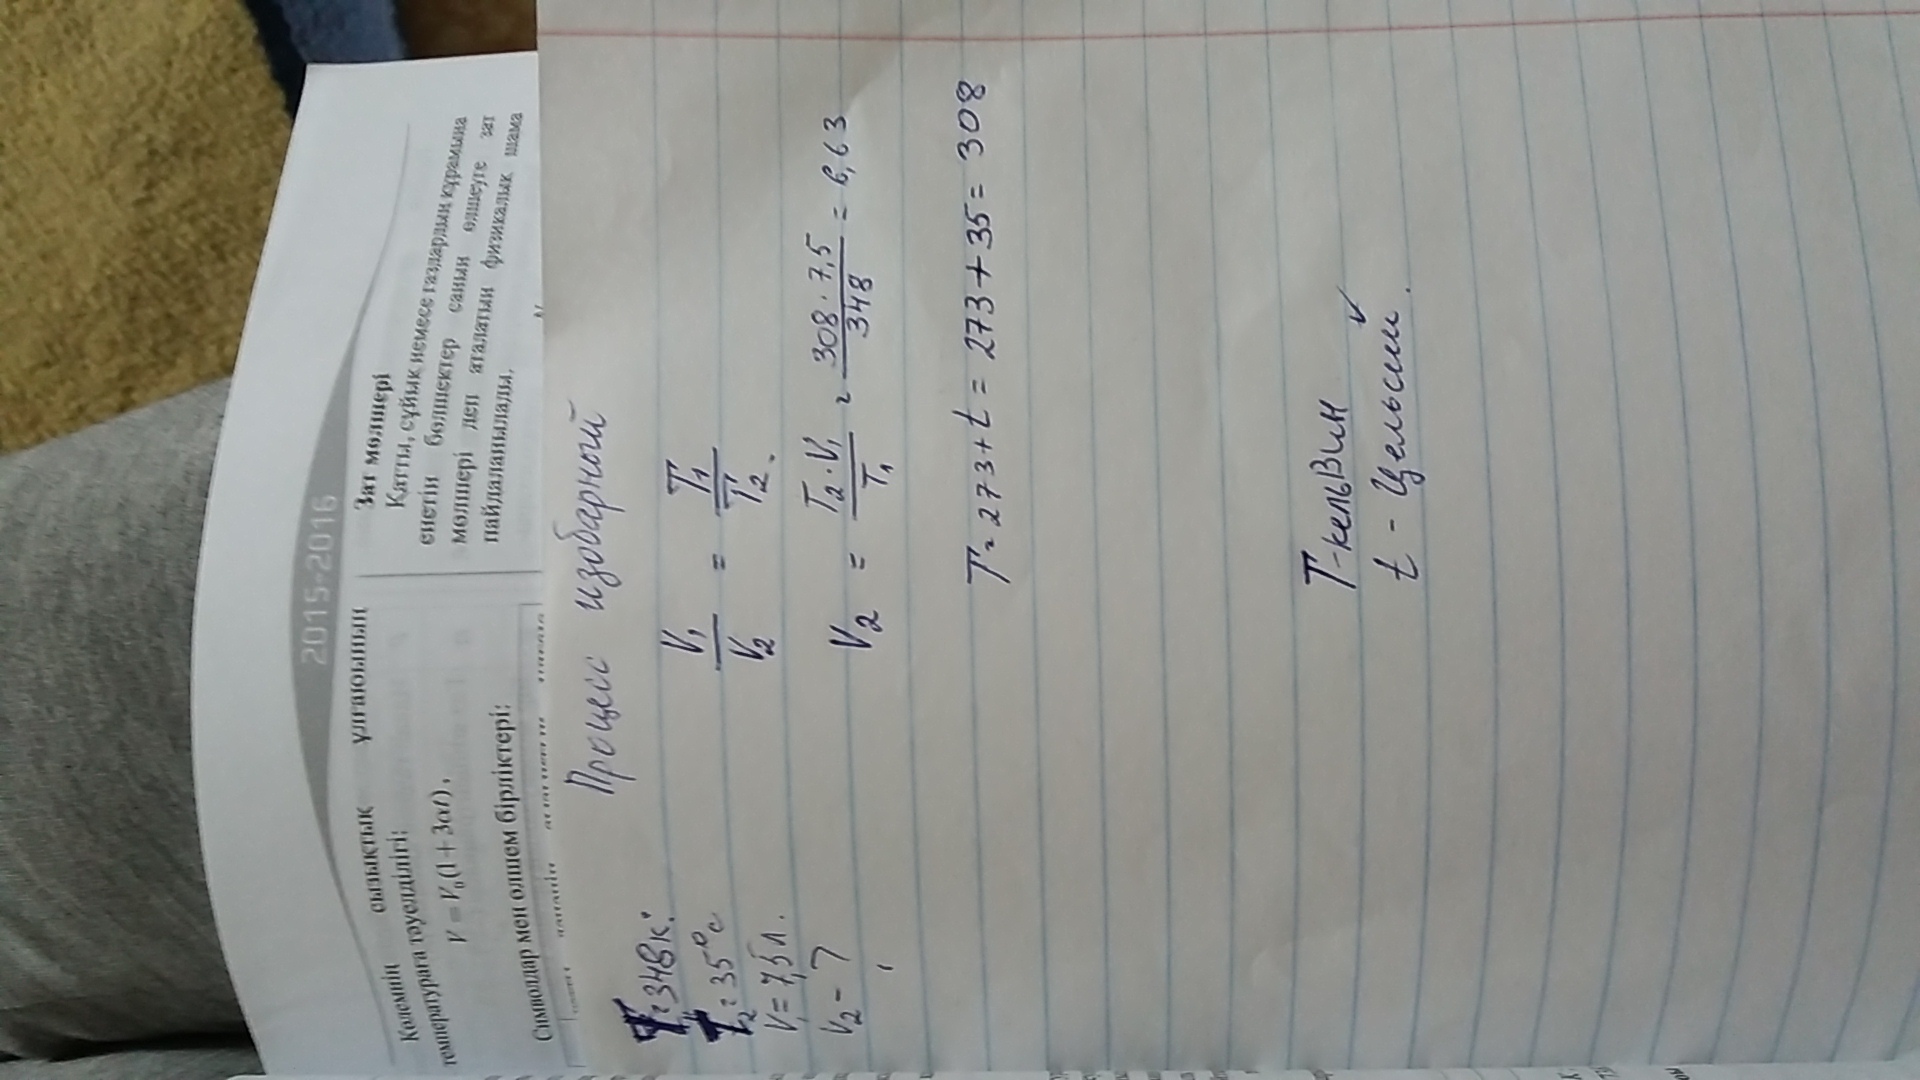 2015-2016
Көлемнің сызықтық ұлғаюының
температураға тәуелділігі:
V = V₀(1 + 3αt),
Символдар мен өлшем бірліктері:
Зат мөлшері
Қатты, сұйық немесе газдардың құрамына
енетін бөлшектер санын өлшеуге зат
мөлшері деп аталатын физикалық шама
пайдаланылады.
N
Процесс изобарный
T₁ = 348к.
T₂ = 35°c
V₁ = 7,5л.
V₂ - ?
V₁/V₂ = T₁/T₂.
V₂ = T₂·V₁/T₁ = 308·7,5/348 = 6,63
T = 273+t = 273+35 = 308
T - кельвин
t - Цельсии.